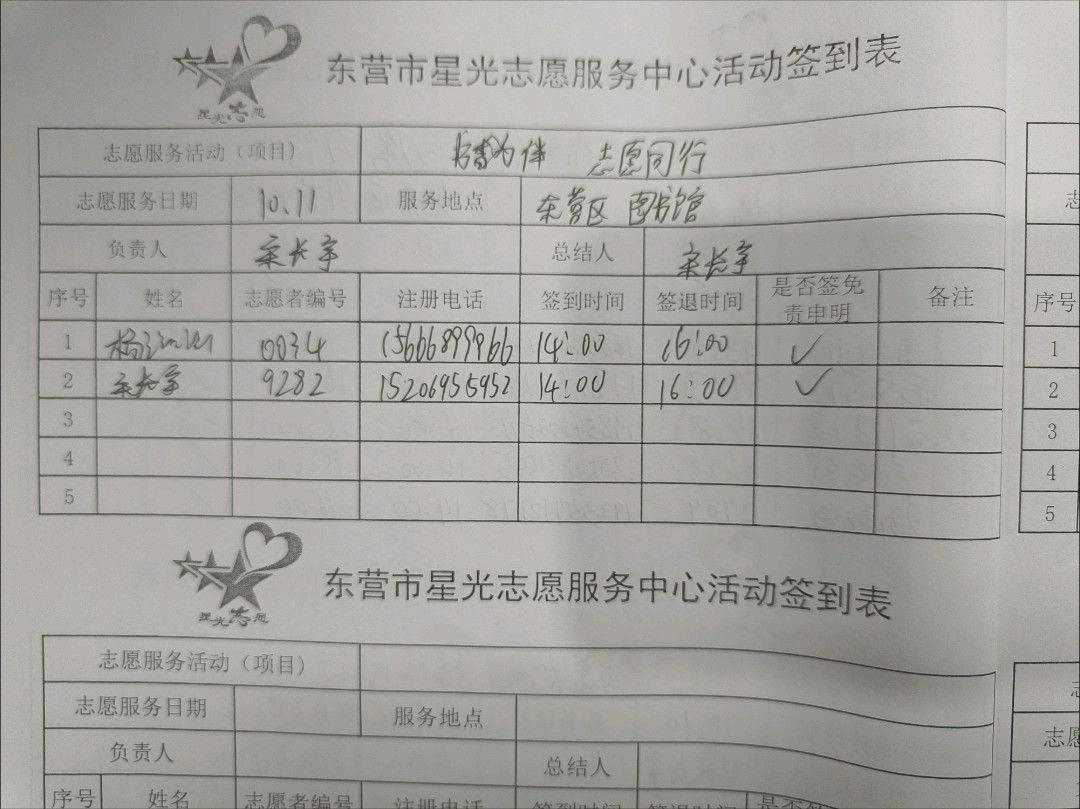 星光志愿
东营市星光志愿服务中心活动签到表
志愿服务活动（项目） 书香为伴 志愿同行
志愿服务日期 10.11 服务地点 东营区 图书馆
负责人 宋长宇 总结人 宋长宇
序号 姓名 志愿者编号 注册电话 签到时间 签退时间 是否签免责申明 备注
1 杨 0034 15666899966 14:00 16:00 ✓
2 宋长宇 9282 15206955952 14:00 16:00 ✓
3
4
5
星光志愿
东营市星光志愿服务中心活动签到表
志愿服务活动（项目）
志愿服务日期 服务地点
负责人 总结人
序号 姓名 志愿者编号 注册电话 签到时间 签退时间 是否签免
志
序号
1
2
3
4
5
志
志愿